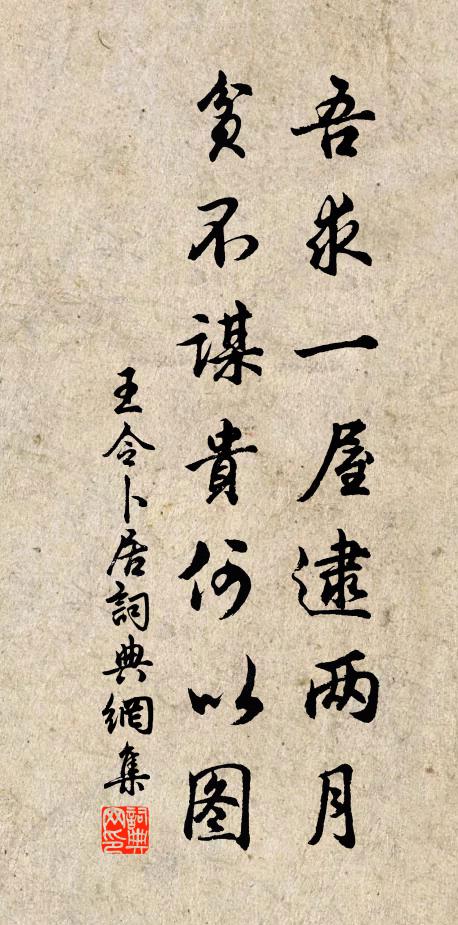 吾求一屋逮两月
贫不谋贵何以图
王令卜居词典网集
詞典网印